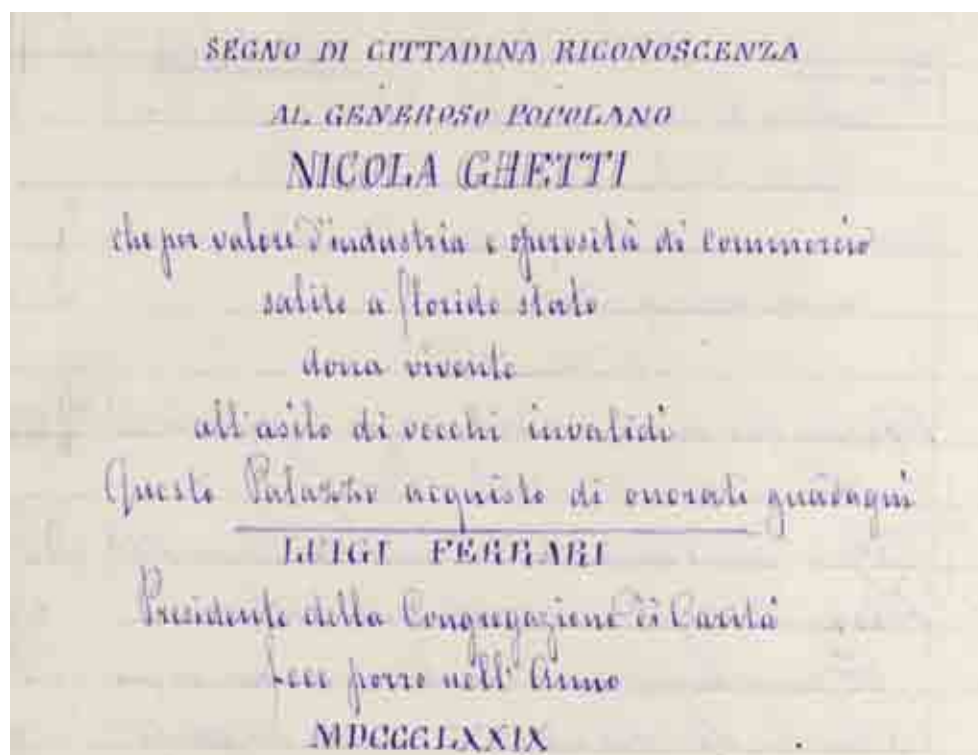 SEGNO DI CITTADINA RICONOSCENZA
AL GENEROSO POPOLANO
NICOLA GHETTI
che per valore d'industria e operosità di Commercio
salito a florido stato
dona vivente
all'asilo di vecchi invalidi
Questo Palazzo acquisto di onorati guadagni
LUIGI FERRARI
Presidente della Congregazione di Carità
fece porre nell'Anno
MDCCCLXXIX